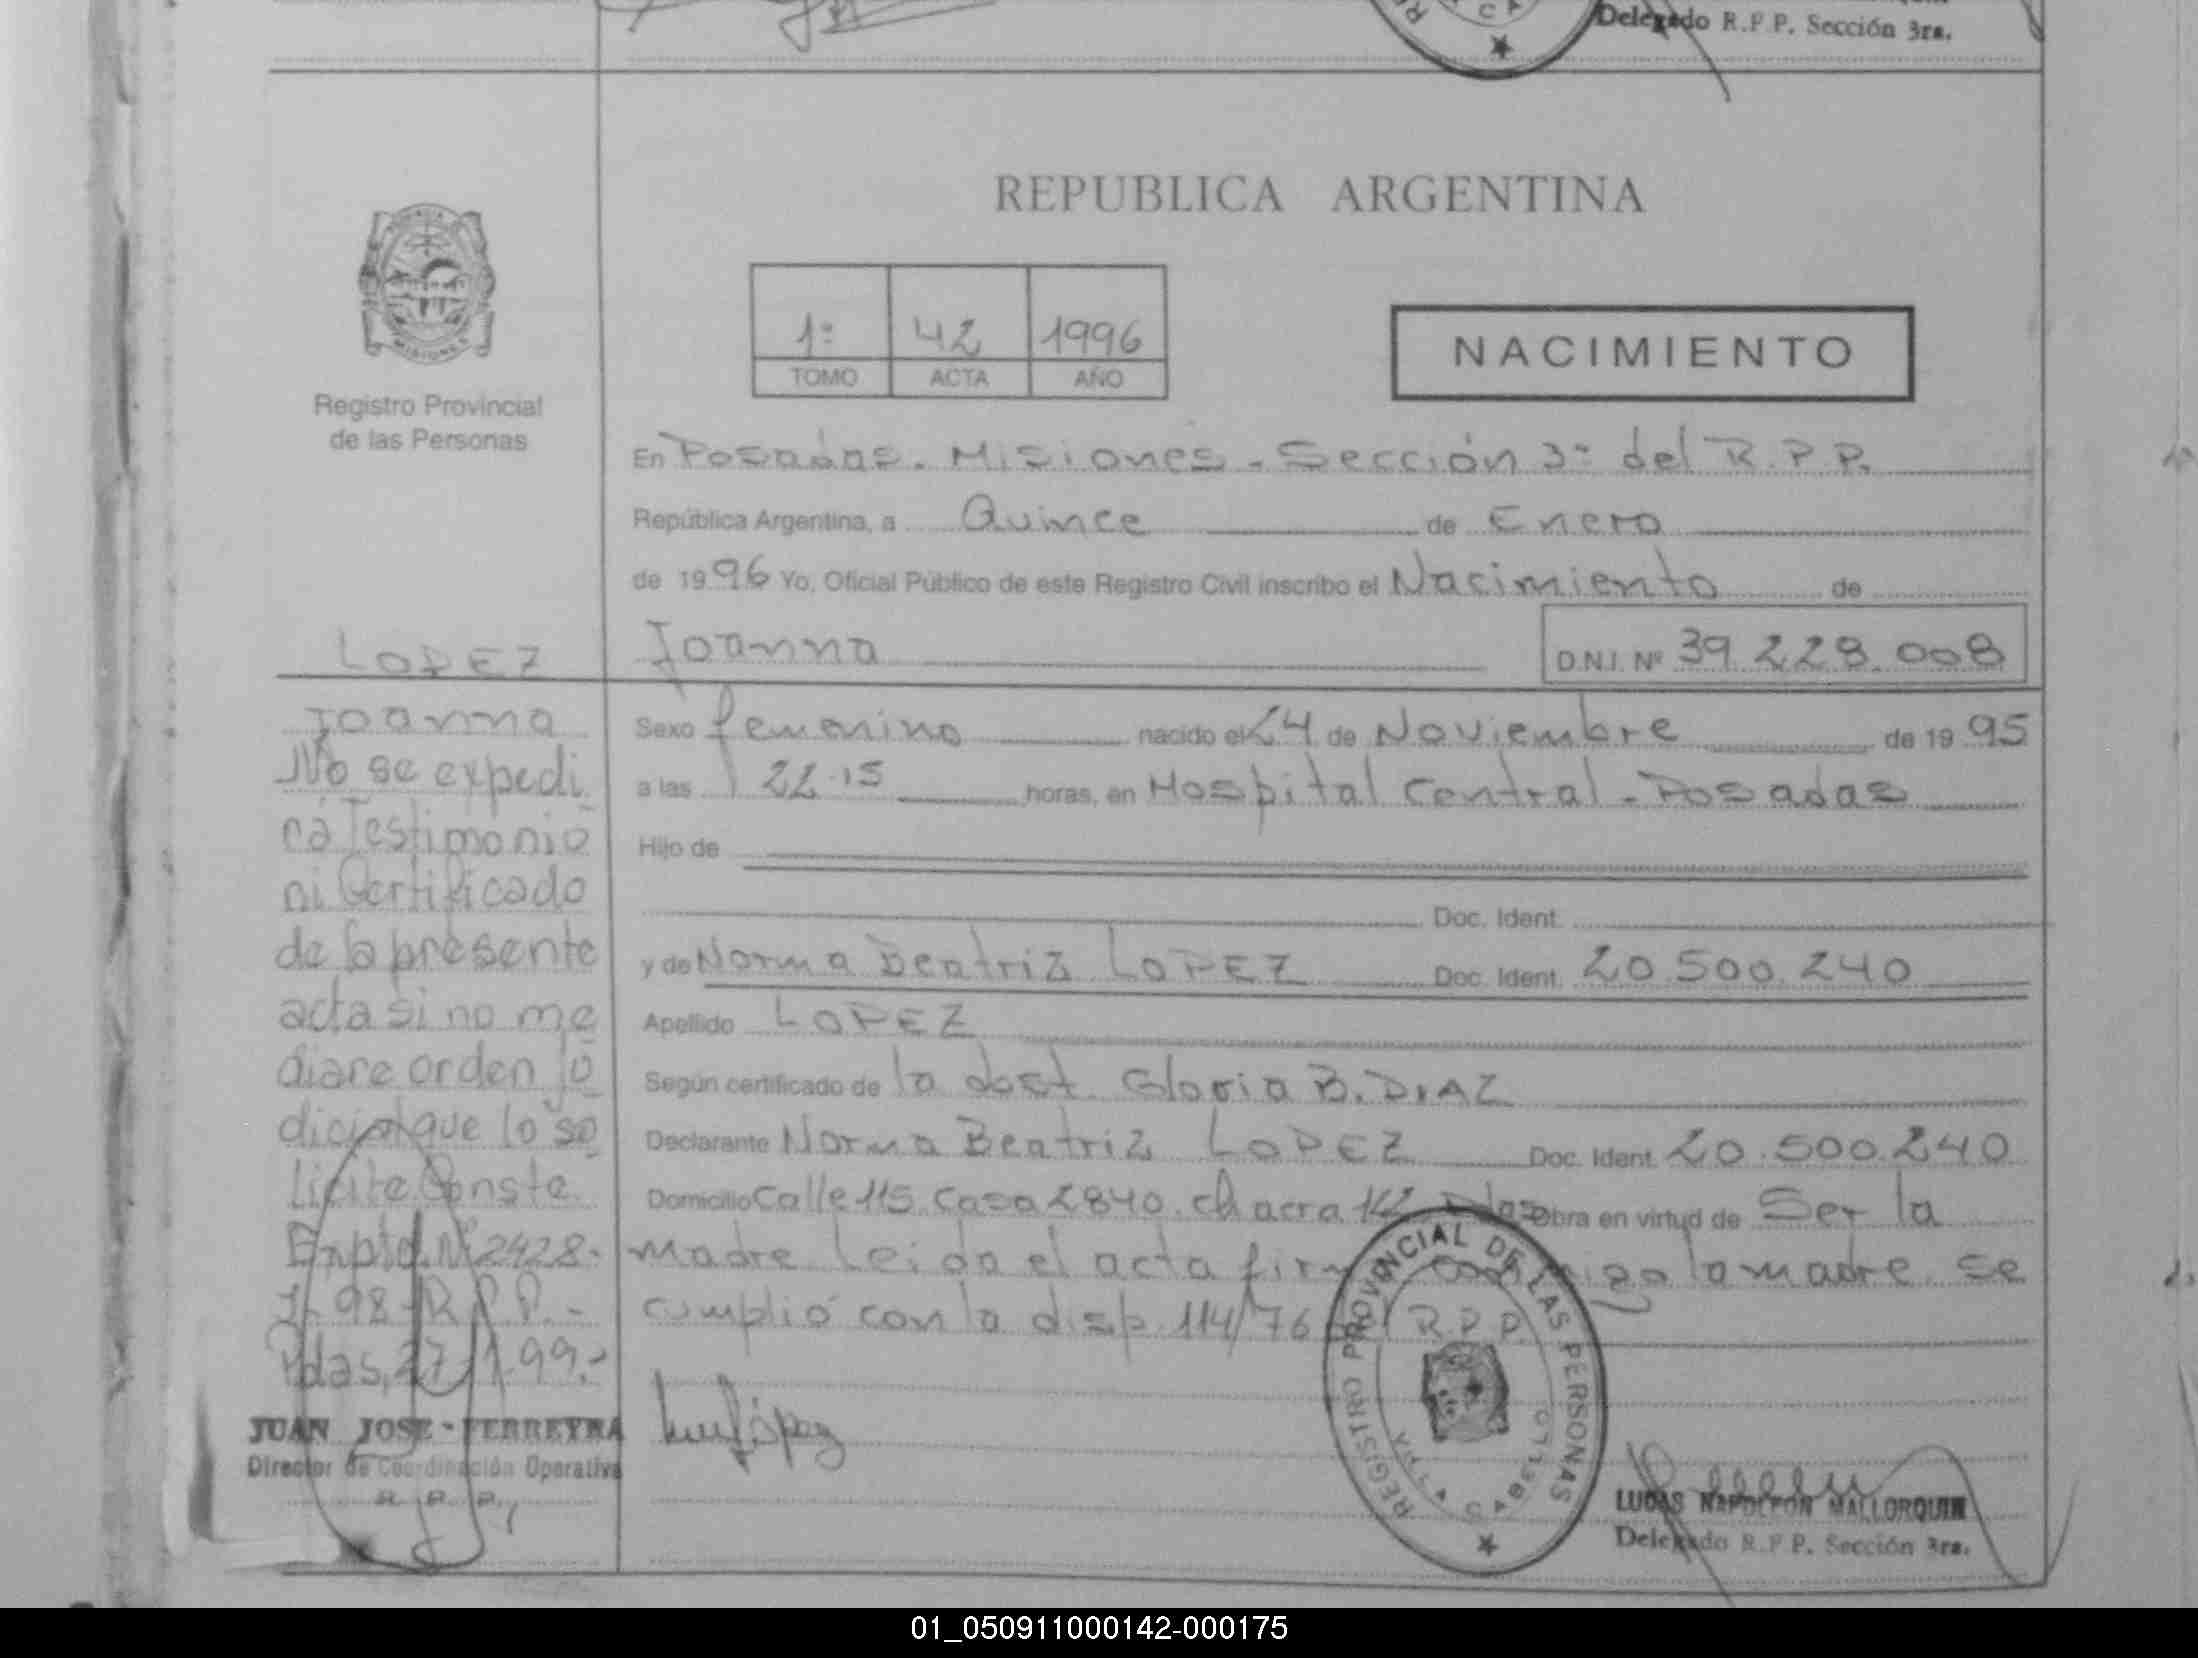 Delegado R.P.P. Sección 3ra.
REPUBLICA ARGENTINA
MISIONES
Registro Provincial
de las Personas
1º 42 1996
TOMO ACTA AÑO
NACIMIENTO
En Posadas. Misiones. Sección 3ª del R.P.P.
República Argentina, a Quince de Enero
de 1996 Yo, Oficial Público de este Registro Civil inscribo el Nacimiento de
Joanna D.N.I. Nº 39.228.008
Sexo femenino nacido el 24 de Noviembre de 1995
a las 22.15 horas, en Hospital Central - Posadas
Hijo de
Doc. Ident.
y de Norma Beatriz LOPEZ Doc. Ident. 20.500.240
Apellido LOPEZ
Según certificado de la doct. Gloria B. DIAZ
Declarante Norma Beatriz LOPEZ Doc. Ident. 20.500.240
Domicilio Calle 115 Casa 2840. chacra Pdas Obra en virtud de Ser la
madre. Leida el acta firma conmigo la madre. Se
cumplió con la disp. 114/76 R.P.P.
LOPEZ
Joanna
No se expedi
rá Testimonio
ni Certificado
de la presente
acta si no me
diare orden ju
dicial que lo so
licite. Conste.
Expte. Nº 2428-
98-R.P.P.-
Pdas, 27-1-99.-
JUAN JOSE FERREYRA
Director de Coordinación Operativa
R. P. P.
López
REGISTRO PROVINCIAL DE LAS PERSONAS
LUCAS NAPOLEON MALLORQUIN
Delegado R.P.P. Sección 3ra.
01_050911000142-000175